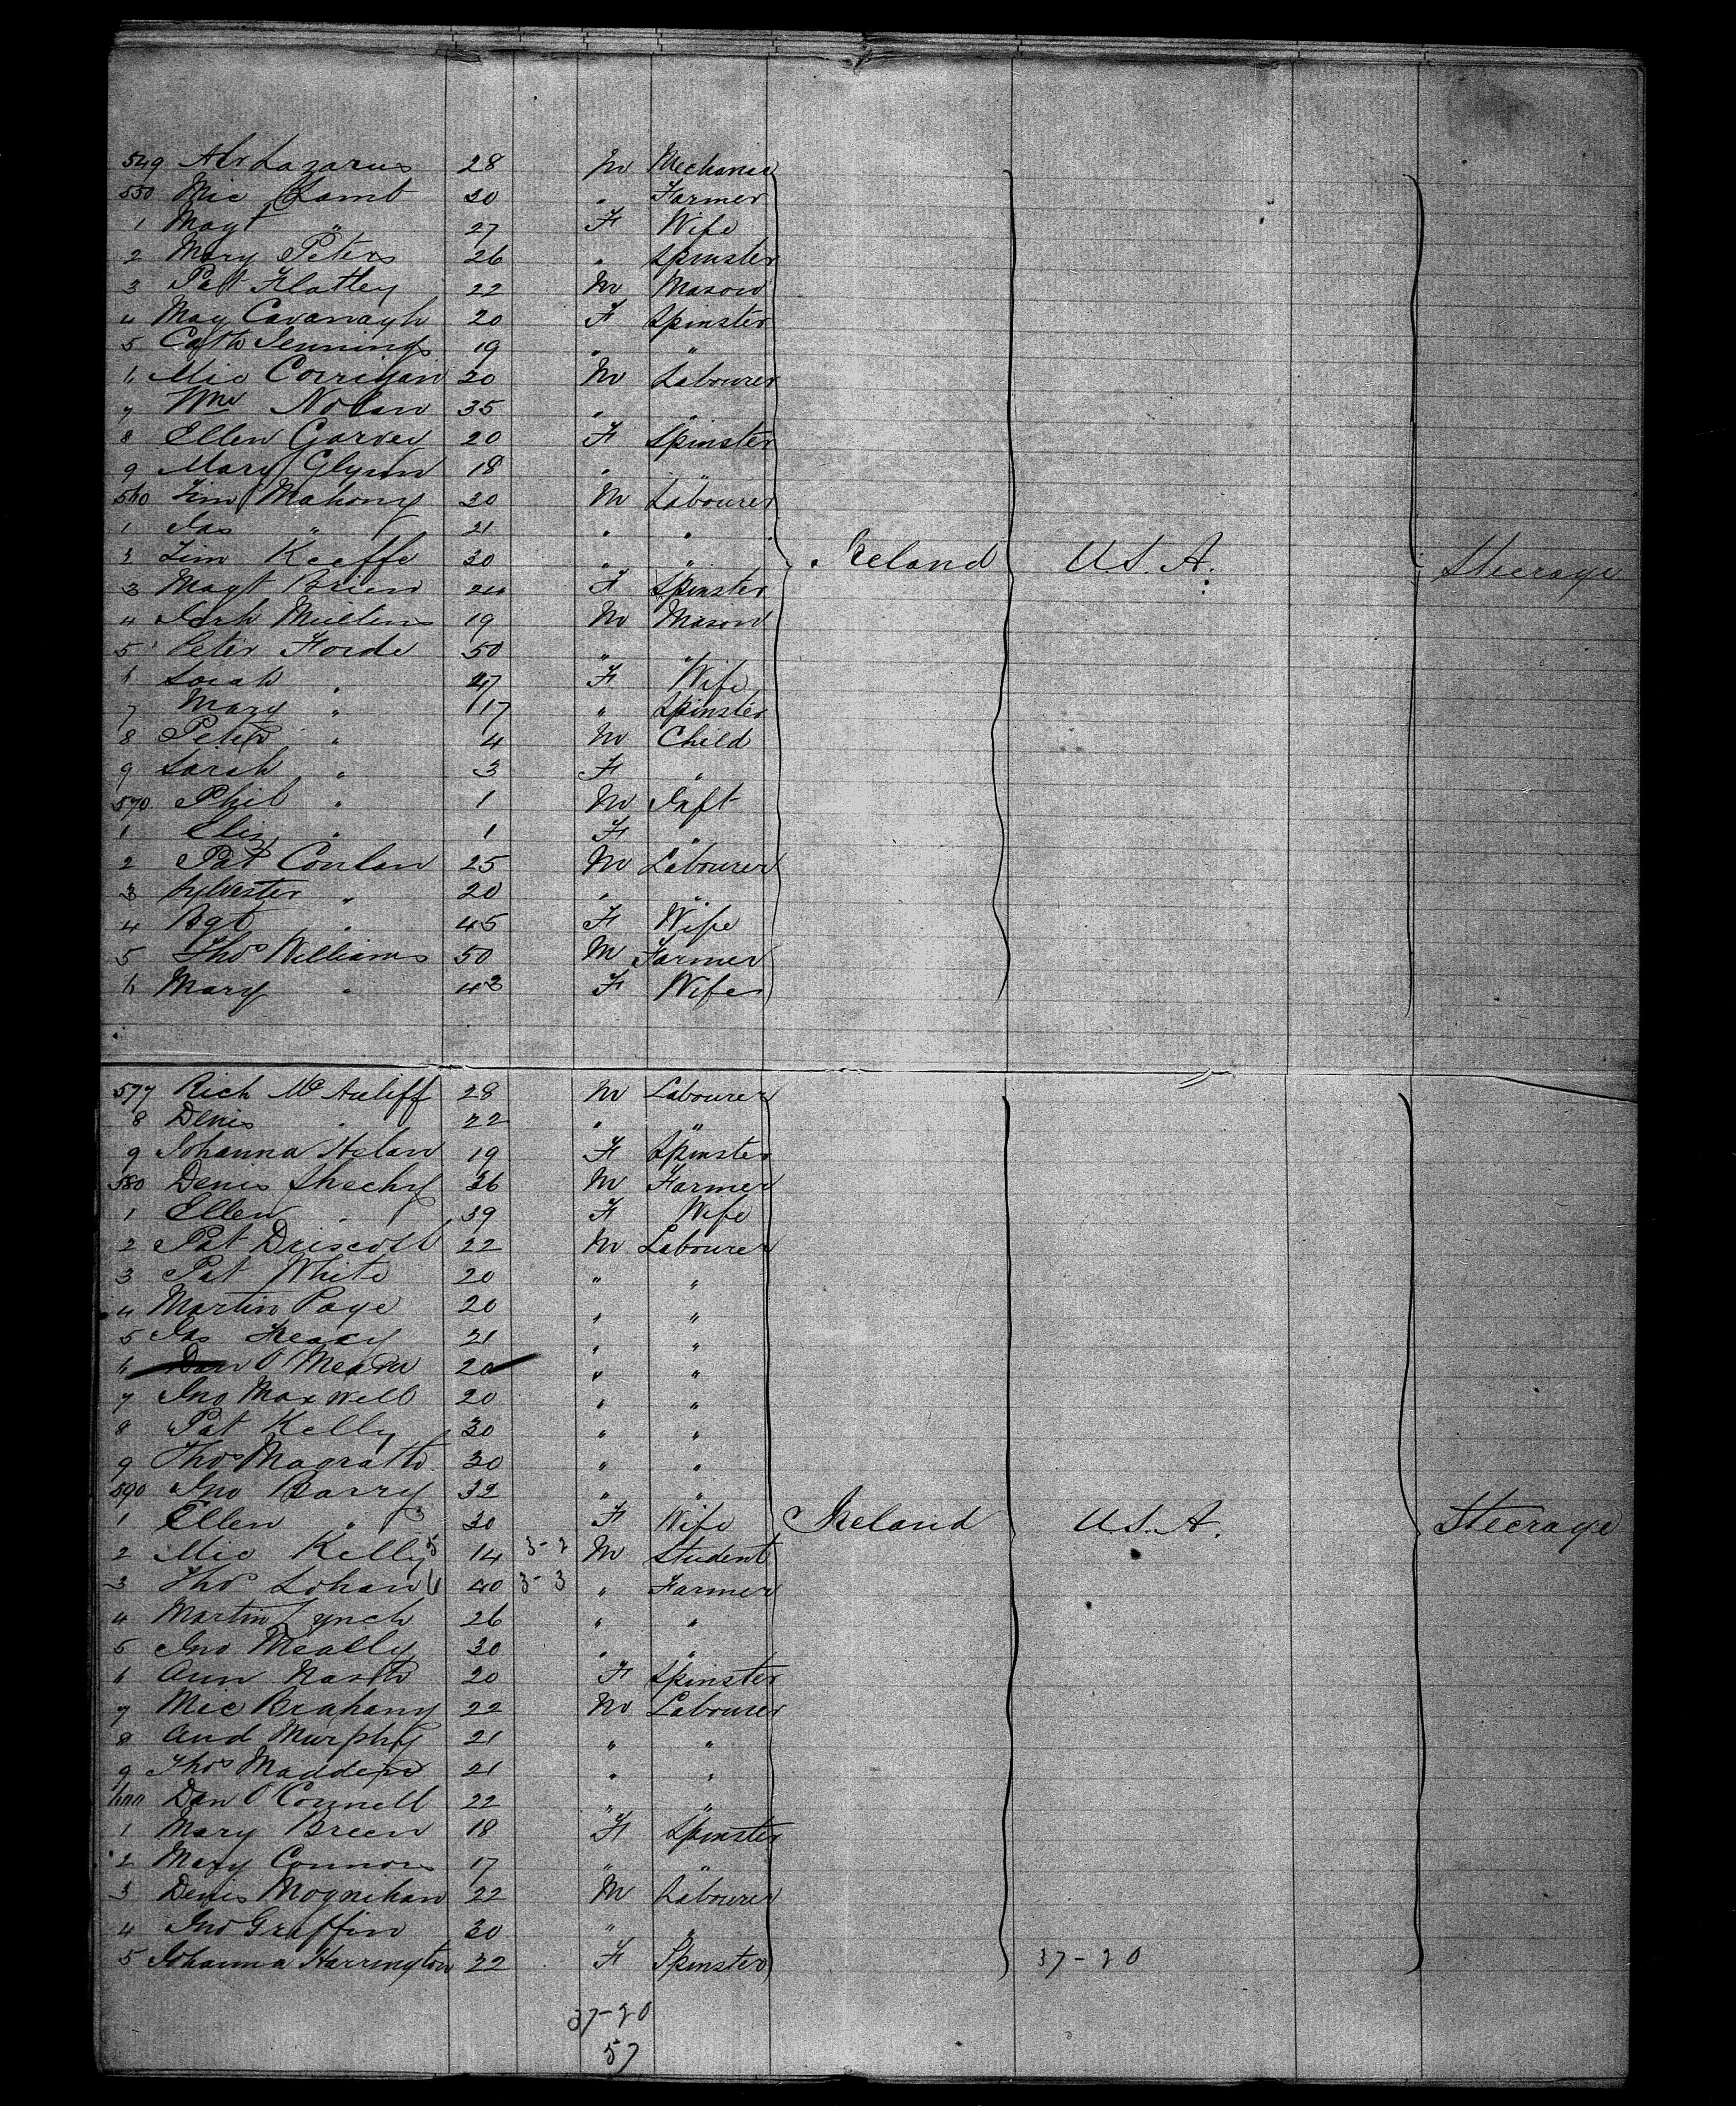 549 Abr Lazarus 28 M Mechanic
550 Mic Lamb 30 " Farmer
1 Magt " 27 F Wife
2 Mary Peters 26 " Spinster
3 Pat Flatley 22 M Mason
4 May Cavanagh 20 F Spinster
5 Cath Jennings 19 " "
6 Mic Corrigan 20 M Labourer
7 Wm Nolan 35 " "
8 Ellen Garvey 20 F Spinster
9 Mary Glynn 18 " "
560 Tim Mahony 20 M Labourer
1 Jas " 21 " "
2 Tim Keeffe 30 " " Ireland U.S.A. Steerage
3 Magt Brien 24 F Spinster
4 Mullins 19 M Mason
5 Peter Forde 50 " "
6 Sarah " 47 F Wife
7 Mary " 17 " Spinster
8 Peter " 4 M Child
9 Sarah " 3 F "
570 Phil " 1 M Inft
1 Eliz " 1 F "
2 Pat Conlan 25 M Labourer
3 Sylvester " 20 " "
4 Bgt " 45 F Wife
5 Thos Williams 50 M Farmer
6 Mary " 43 F Wife
577 Rich McAuliff 28 M Labourer
8 Denis " 22 " "
9 Johanna Helan 19 F Spinster
580 Denis Sheehy 36 M Farmer
1 Ellen " 39 F Wife
2 Pat Driscoll 22 M Labourer
3 Pat White 20 " "
4 Martin Page 20 " "
5 Jas 21 " "
6 Dan O'Meara 20 " "
7 Jno Maxwell 20 " "
8 Pat Kelly 30 " "
9 Thos Magrath 30 " "
590 Jno Barry 32 " "
1 Ellen " 30 F Wife Ireland U.S.A. Steerage
2 Mic Kelly 5 14 3-2 M Student
3 Thos Lohan 6 40 3-3 " Farmer
4 Martin Lynch 26 " "
5 Jno Meally 30 " "
6 Ann Nash 20 F Spinster
7 Mic Brahany 22 M Labourer
8 And Murphy 21 " "
9 Thos Madden 21 " "
600 Dan O'Connell 22 " "
1 Mary Breen 18 F Spinster
2 Mary Connors 17 " "
3 Denis Moynihan 22 M Labourer
4 Jno Griffin 30 " "
5 Johanna Harrington 22 F Spinster 37-20
37-20
57